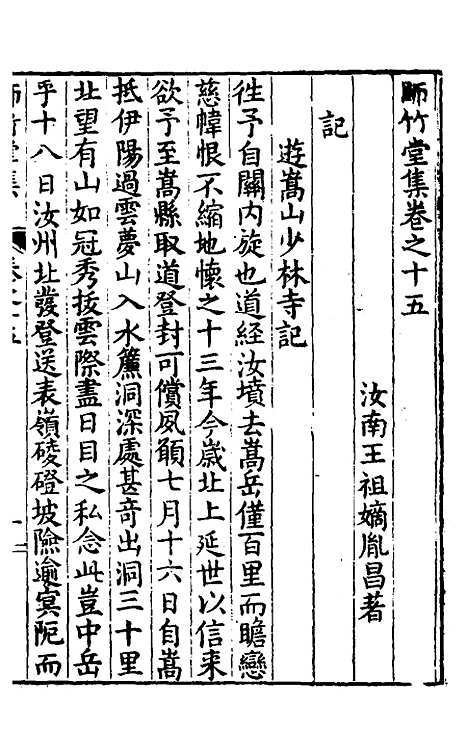 師竹堂集卷之十五
汝南王祖嫡胤昌著
記
遊嵩山少林寺記
徃予自關内旋也道経汝墳去嵩岳僅百里而瞻戀
慈幃恨不縮地懷之十三年今歲北上延世以信来
欲予至嵩縣取道登封可償夙願七月十六日自嵩
抵伊陽過雲夢山入水簾洞深處甚竒出洞三十里
北望有山如冠秀拔雲際盡日目之私念此豈中岳
乎十八日汝州北發登送表嶺磴坡險逾冥阨而
師竹堂集
卷之十五
一